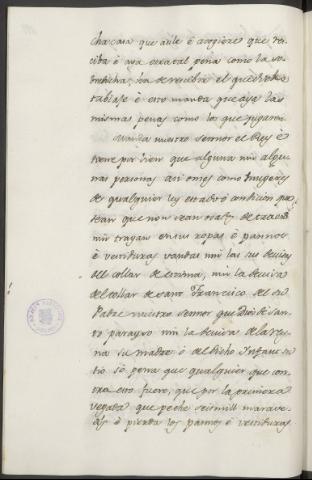 cha cara que aule é acogiere que
é una tal pena como la so-
bredicha, ha de recebir el que
tablaje é esto manda que aya las
mismas penas como los que jugaren.
Manda nuestro sennor el Rey é
tiene por bien que alguna nin algu-
nas personas asi omes como mugeres
de qualquier ley estado é condicion que
sean que non sean
nin tragan en sus ropas é pannos
é vestiduras vandas nin las sus devisas
del collar de nin la devisa
del collar de sant Francisco del su
Padre nuestro sennor que Dios de san-
to parayso nin la devisa de la rey-
na su madre é del dicho Infante su
tio só pena que qualquier que con-
tra esto fuere, que por la primera
vegada que peche seis mill marave-
dis é pierda los pannos é vestiduras